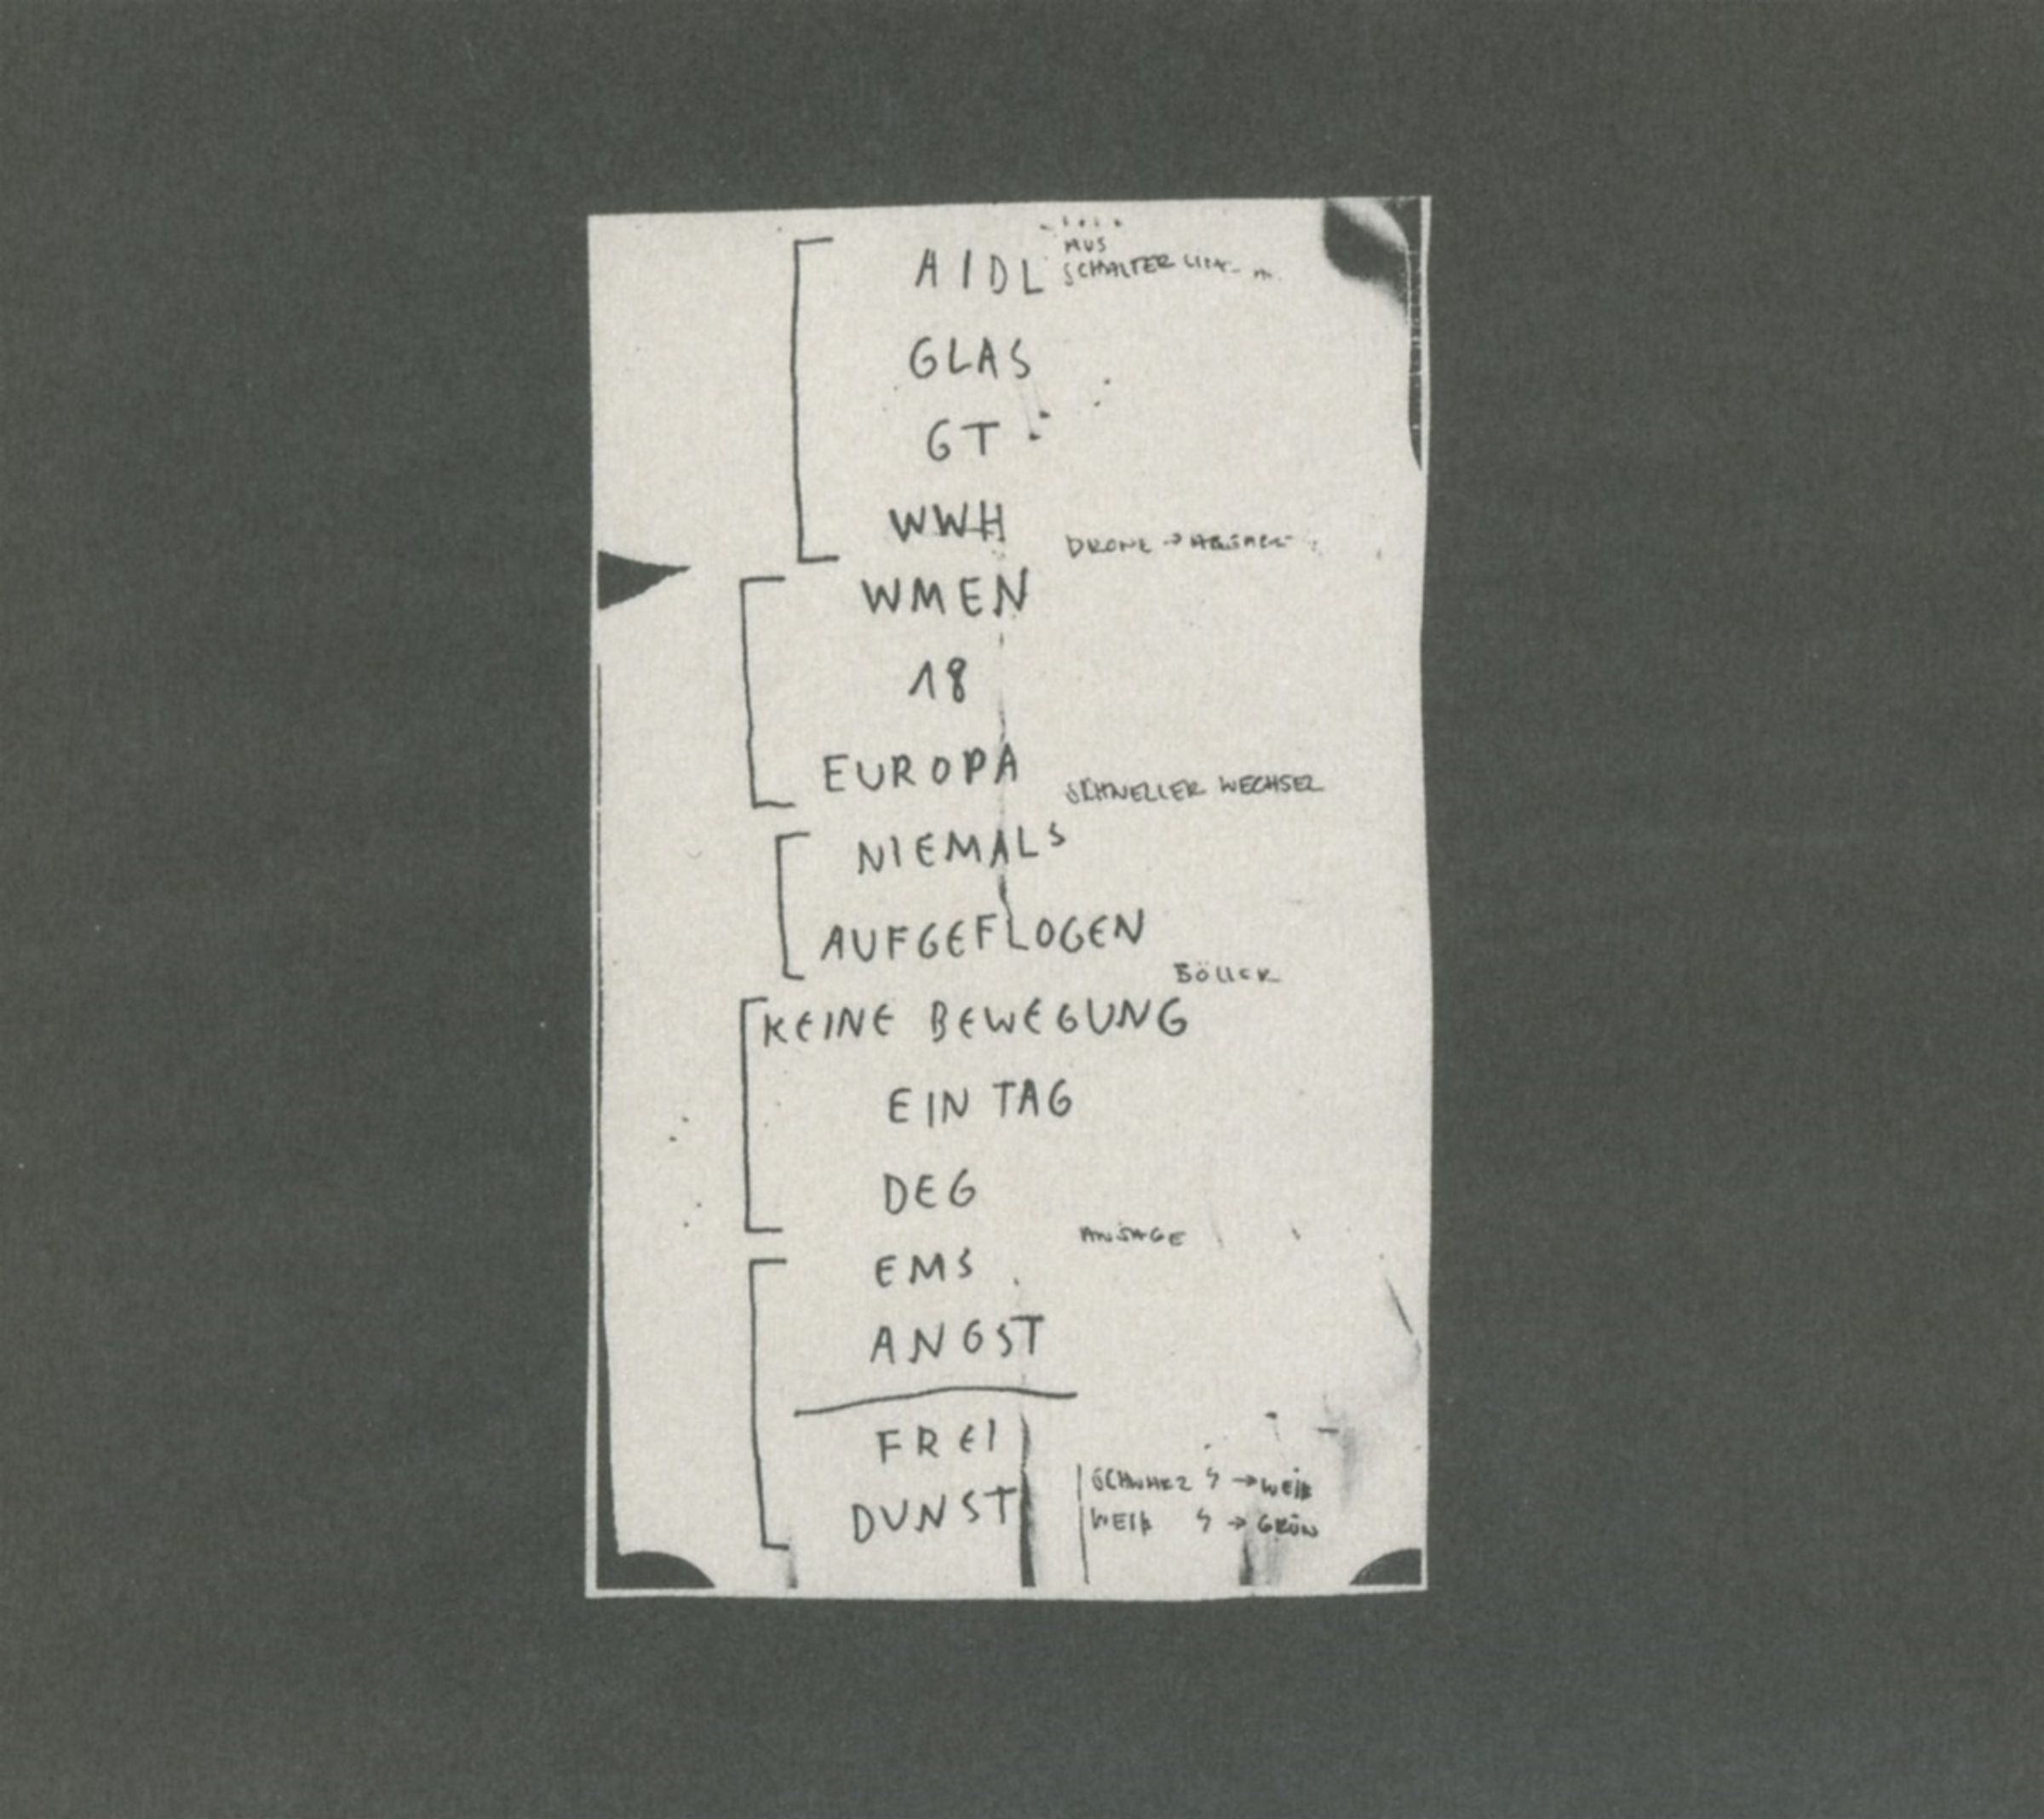 AUS
AIDL SCHALTER
GLAS
GT
WWH
DRONE →
WMEN
18
EUROPA
SCHNELLER WECHSEL
NIEMALS
AUFGEFLOGEN
BÖLLER
KEINE BEWEGUNG
EIN TAG
DEG
ANSAGE
EMS
ANGST
FREI
SCHWARZ ϟ → WEIß
DUNST
WEIß ϟ → GRÜN